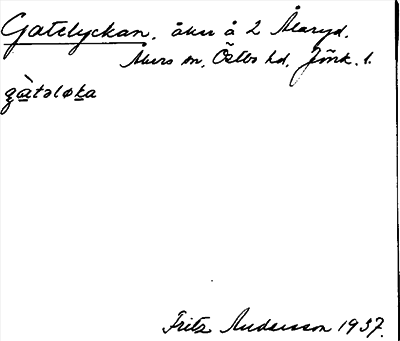 Gatelyckan, åker å 2 Ålaryd,
Åkers sn, Östbo hd, Jönk. l.
gàtəløka
Fritz Andersson 1937.